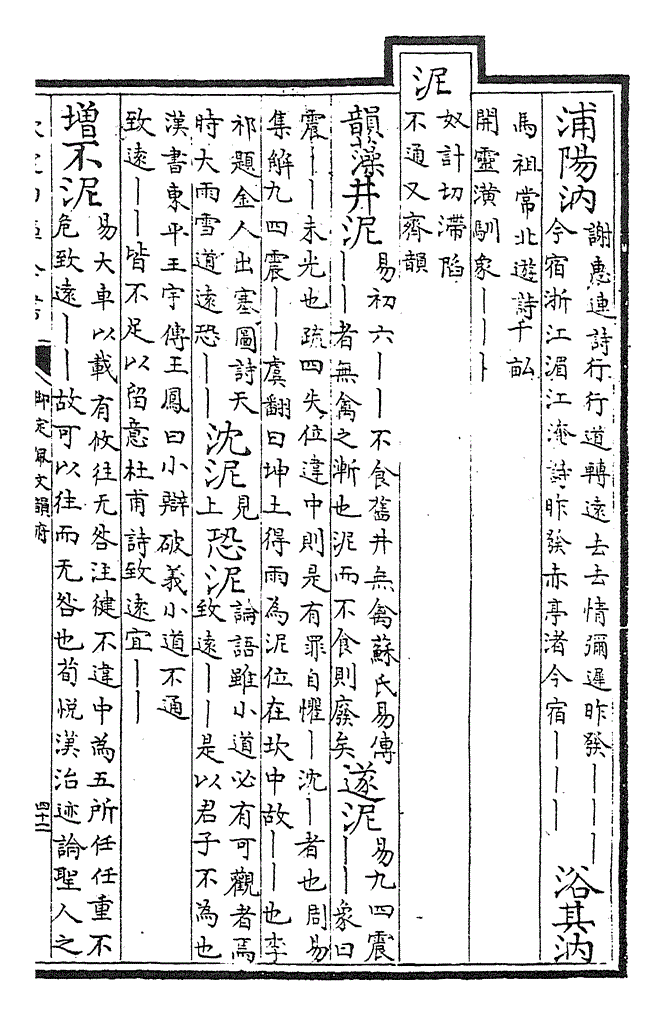 浦陽汭
謝惠連詩行行道轉遠去去情彌遲昨發｜｜｜
今宿浙江湄江淹詩昨發赤亭渚今宿｜｜｜
浴其汭
馬祖常北遊詩千畝
開靈潢馴象｜｜｜
泥
奴計切滯陷
不通又齊韻
韻藻井泥
易初六｜｜不食舊井無禽蘇氏易傳
｜｜者無禽之漸也泥而不食則廢矣
遂泥
易九四震
｜｜象曰
震｜｜未光也疏四失位違中則是有罪自懼｜沈｜者也周易
集解九四震｜｜虞翻曰坤土得雨為泥位在坎中故｜｜也李
祁題金人出塞圖詩天
時大雨雪道遠恐｜｜
沈泥
見
上
恐泥
論語雖小道必有可觀者焉
致遠｜｜是以君子不為也
漢書東平王宇傳王鳳曰小辯破義小道不通
致遠｜｜皆不足以留意杜甫詩致遠宜｜｜
增不泥
易大車以載有攸往无咎注健不違中為五所任任重不
危致遠｜｜故可以往而无咎也荀悅漢治迹論聖人之
御定佩文韻府
四十二